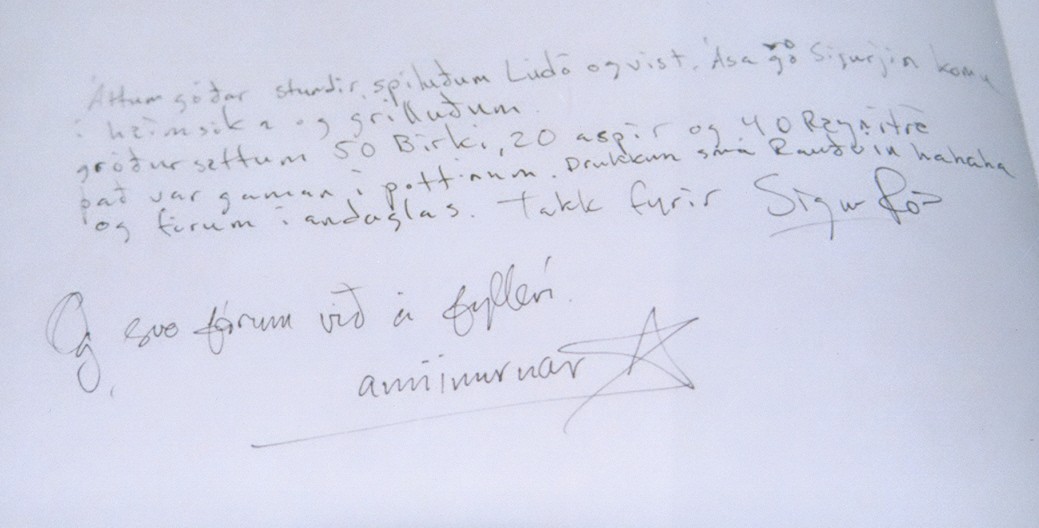 Áttum góðar stundir, spiluðum Lúdó og vist. Ása og Sigurjón komu
í heimsókn og grilluðum.
gróðursettum 50 Birki, 20 aspir og 40 Reynitré
það var gaman í pottinum. Drukkum smá Rauðvín hahaha
og fórum í andaglas. Takk fyrir Sigur Rós
Og svo fórum við á fyllerí.
amiinurnar